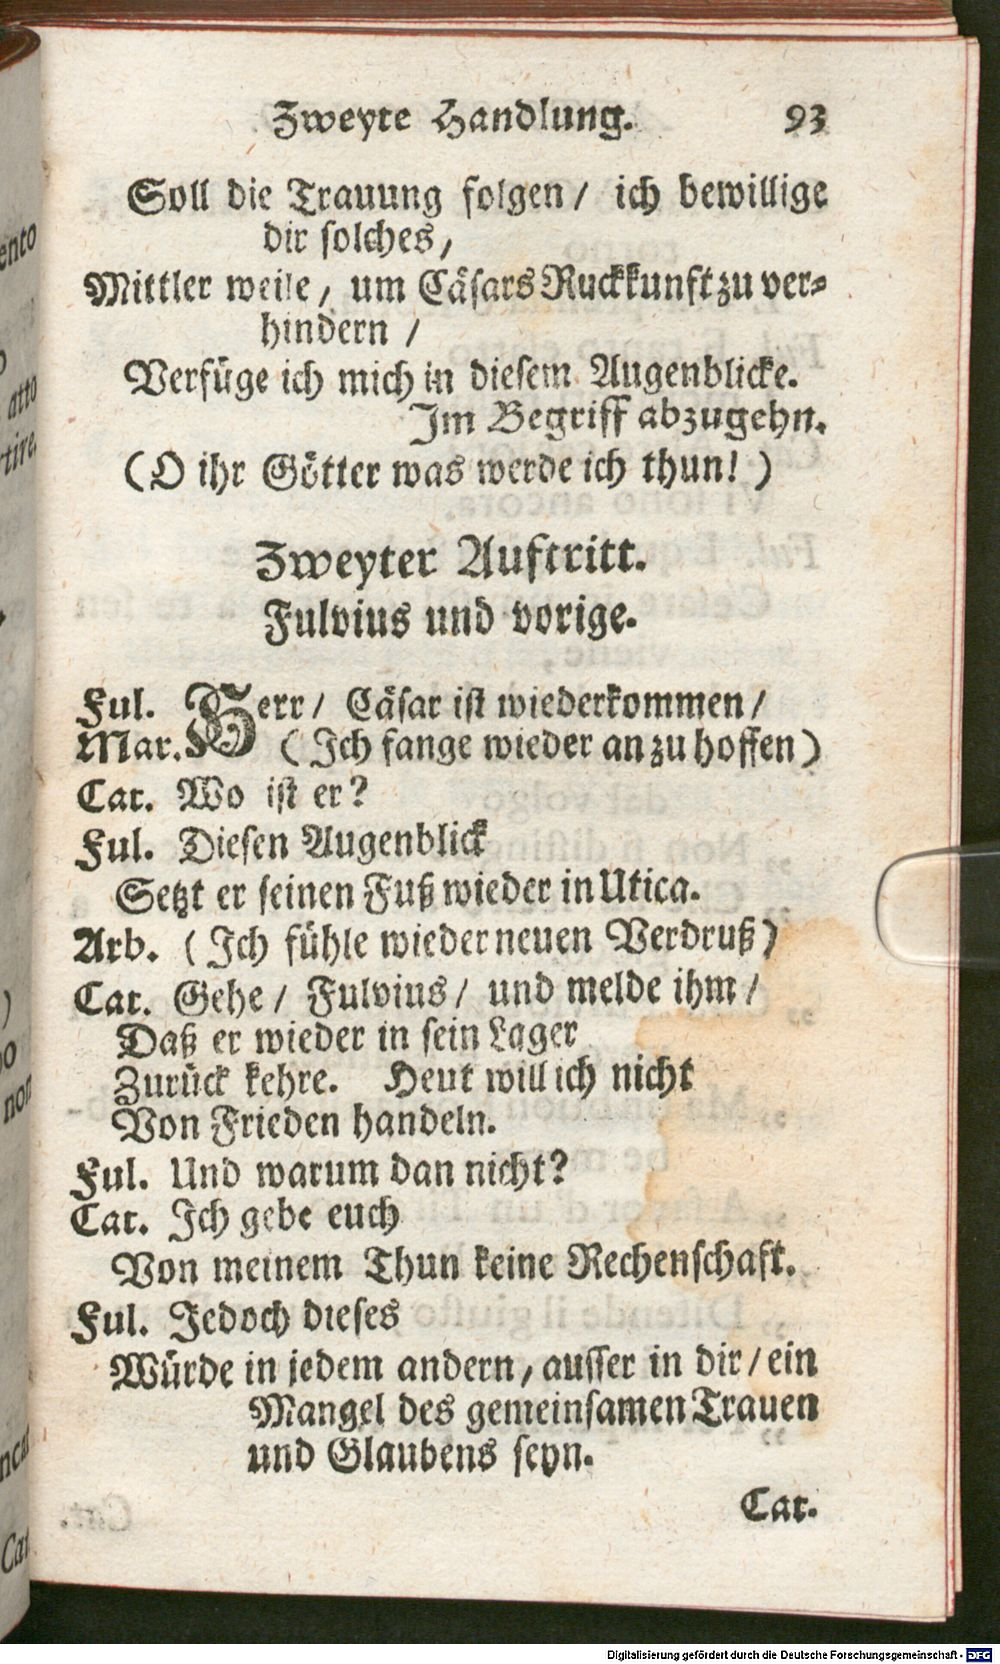 Zweyte Handlung. 93
Soll die Trauung folgen / ich bewillige
dir solches,
Mittler weile, um Cäsars Ruckkunft zu ver-
hindern /
Verfüge ich mich in diesem Augenblicke.
Im Begriff abzugehn.
(O ihr Götter was werde ich thun! )
Zweyter Auftritt.
Fulvius und vorige.
Ful. Herr / Cäsar ist wiederkommen /
Mar. ( Ich fange wieder an zu hoffen )
Cat. Wo ist er?
Ful. Diesen Augenblick
Setzt er seinen Fuß wieder in Utica.
Arb. ( Ich fühle wieder neuen Verdruß )
Cat. Gehe / Fulvius / und melde ihm /
Daß er wieder in sein Lager
Zurück kehre. Heut will ich nicht
Von Frieden handeln.
Ful. Und warum dan nicht?
Cat. Ich gebe euch
Von meinem Thun keine Rechenschaft.
Ful. Jedoch dieses
Würde in jedem andern, ausser in dir / ein
Mangel des gemeinsamen Trauen
und Glaubens seyn.
Cat.
ento
atto
rtire.
non
ncar
Cat
Digitalisierung gefördert durch die Deutsche Forschungsgemeinschaft - DFG